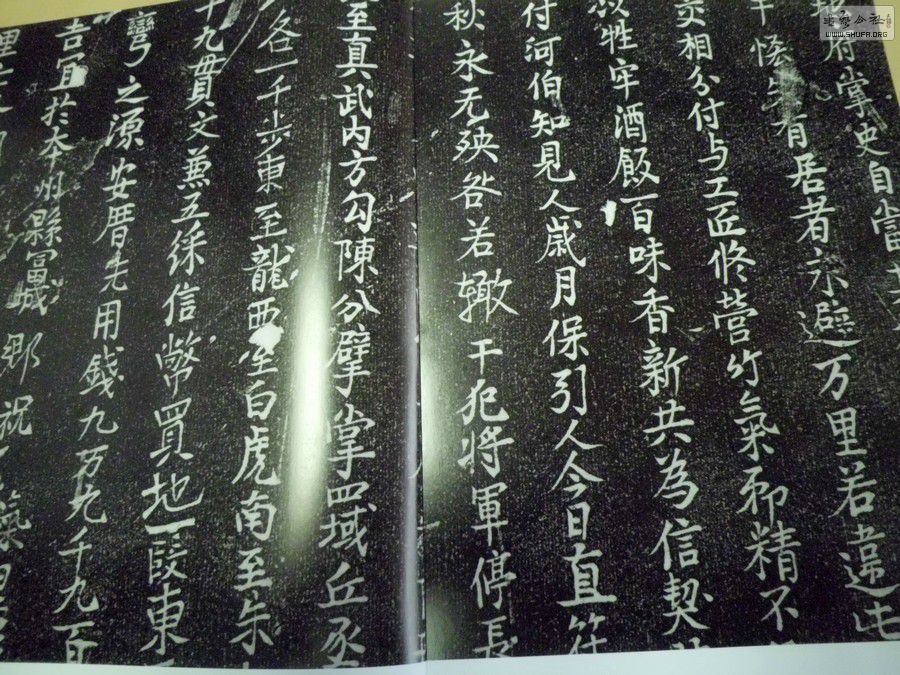 吉宜於本州縣富城鄉祝
彎之源安厝先用錢九万九千九百
十九貫文兼五綵信幣買地一段東
各一千步東至龍西至白虎南至朱
至真武内方勾陳分擘掌四域丘丞
秋永无殃咎若輙干犯將軍停長
付河伯知見人歲月保引人今日直符
牲牢酒飯百味香新共為信契
交相分付与工匠修營竹氣邪精不
干恠先有居者永避万里若違此
府掌史自當其
WWW.SHUFA.ORG